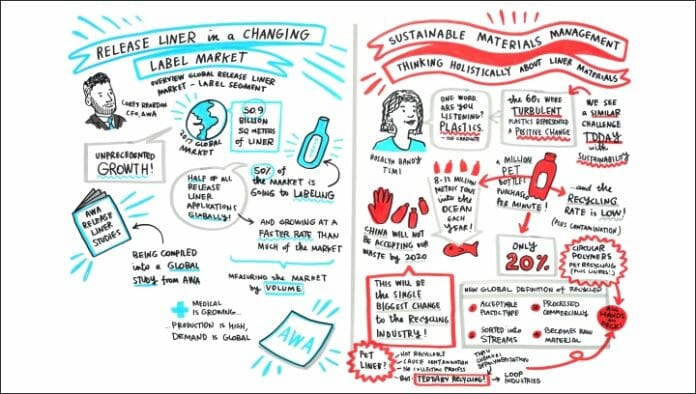 RELEASE LINER in a CHANGING
LABEL MARKET
OVERVIEW GLOBAL RELEASE LINER
MARKET - LABEL SEGMENT
COREY REARDON
CEO, AWA
2017 GLOBAL
MARKET
50.9
BILLION
SQ METERS
of LINER
UNPRECEDENTED
GROWTH!
HALF of ALL
RELEASE
LINER
APPLICATIONS
GLOBALLY!
50% of
the MARKET is
GOING to LABELING
AND GROWING AT A
FASTER RATE THAN
MUCH of the MARKET
AWA
RELEASE
LINER
STUDIES
BEING COMPILED
into a GLOBAL
STUDY from AWA
MEASURING the MARKET
by VOLUME
MEDICAL
is GROWING...
...PRODUCTION is HIGH,
DEMAND is GLOBAL
AWA
SUSTAINABLE MATERIALS MANAGEMENT
THINKING HOLISTICALLY ABOUT LINER MATERIALS
ROSALYN BANDY
TLMI
ONE WORD.
ARE YOU
LISTENING?
PLASTICS.
- THE GRADUATE
the 60s WERE
TURBULENT
PLASTICS REPRESENTED
A POSITIVE CHANGE
WE SEE
a SIMILAR
CHALLENGE
TODAY
with
SUSTAINABILITY
CHINA WILL NOT
BE ACCEPTING OUR
WASTE by 2020
8-12 MILLION
METRIC TONS
into the
OCEAN
EACH
YEAR!
A MILLION
PET
BOTTLES
PURCHASED
PER MINUTE!
...and the
RECYCLING
RATE is LOW!
(PLUS CONTAMINATION)
ONLY
20%
CIRCULAR
POLYMERS
PET RECYCLING
(PLUS LINERS!)
THIS WILL BE
the SINGLE
BIGGEST CHANGE
to the RECYCLING
INDUSTRY!
NEW GLOBAL DEFINITION of RECYCLED
ACCEPTABLE
PLASTIC TYPE
PROCESSED
COMMERCIALLY
SORTED into
STREAMS
BECOMES RAW
MATERIAL
AND HANDS
on PACK!
PET
LINER?
NOT RECYCLABLE
CAUSE CONTAMINATION
NO COLLECTING PROCESS
BUT TERTIARY RECYCLING!
THRU
CHEMICAL
DEPOLYMERIZATION
LOOP
INDUSTRIES